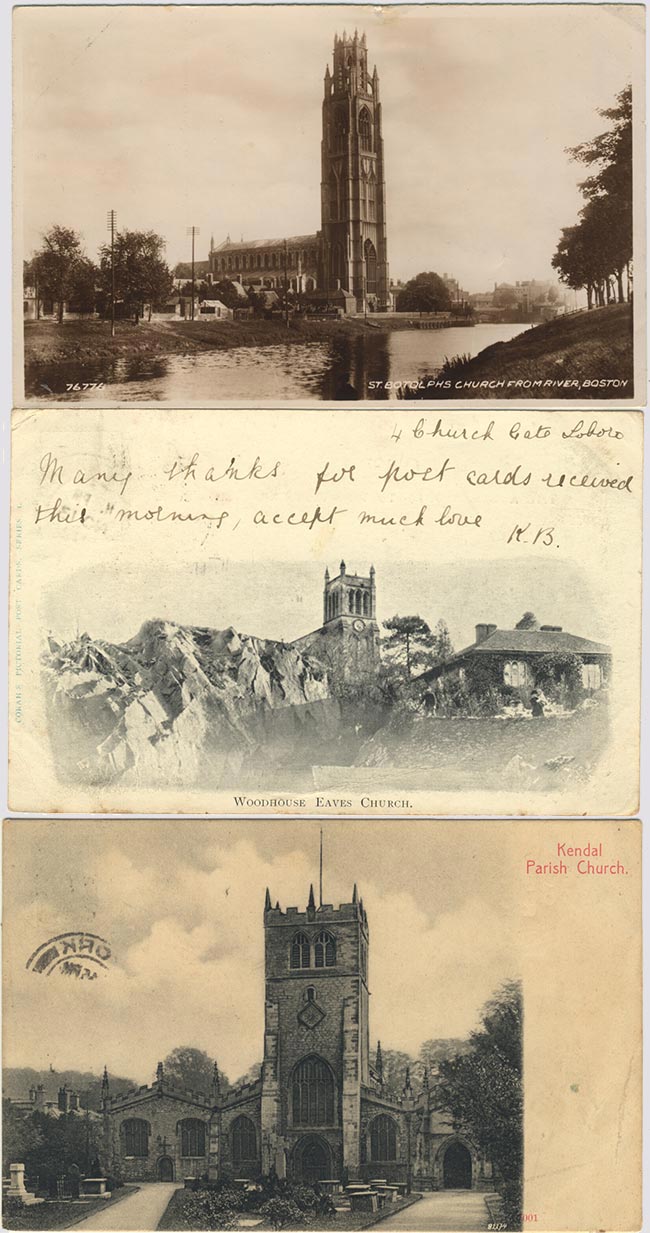 76776
ST. BOTOLPHS CHURCH FROM RIVER, BOSTON
4 Church Gate Loboro
Many thanks for post cards received
this morning, accept much love
K.B.
PICTORIAL POST CARDS. SERIES
WOODHOUSE EAVES CHURCH.
Kendal
Parish Church.
ORK